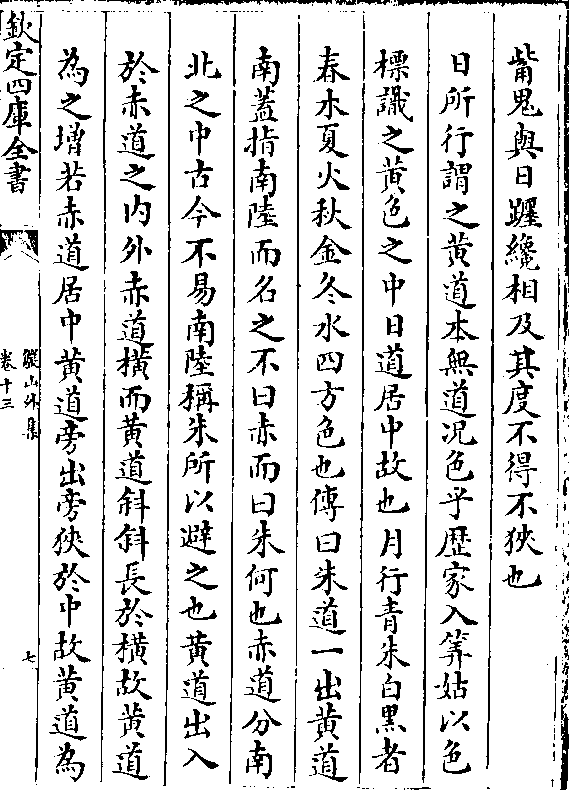 觜鬼與日躔纔相及其度不得不狹也
日所行謂之黄道本無道况色乎歴家入筭姑以色
標識之黄色之中日道居中故也月行青朱白黒者
春木夏火秋金冬水四方色也傳曰朱道一出黄道
南蓋指南陸而名之不曰赤而曰朱何也赤道分南
北之中古今不易南陸稱朱所以避之也黄道出入
於赤道之内外赤道横而黄道斜斜長於横故黄道
為之增若赤道居中黄道旁出旁狹於中故黄道為
欽定四庫全書
卷十三
七